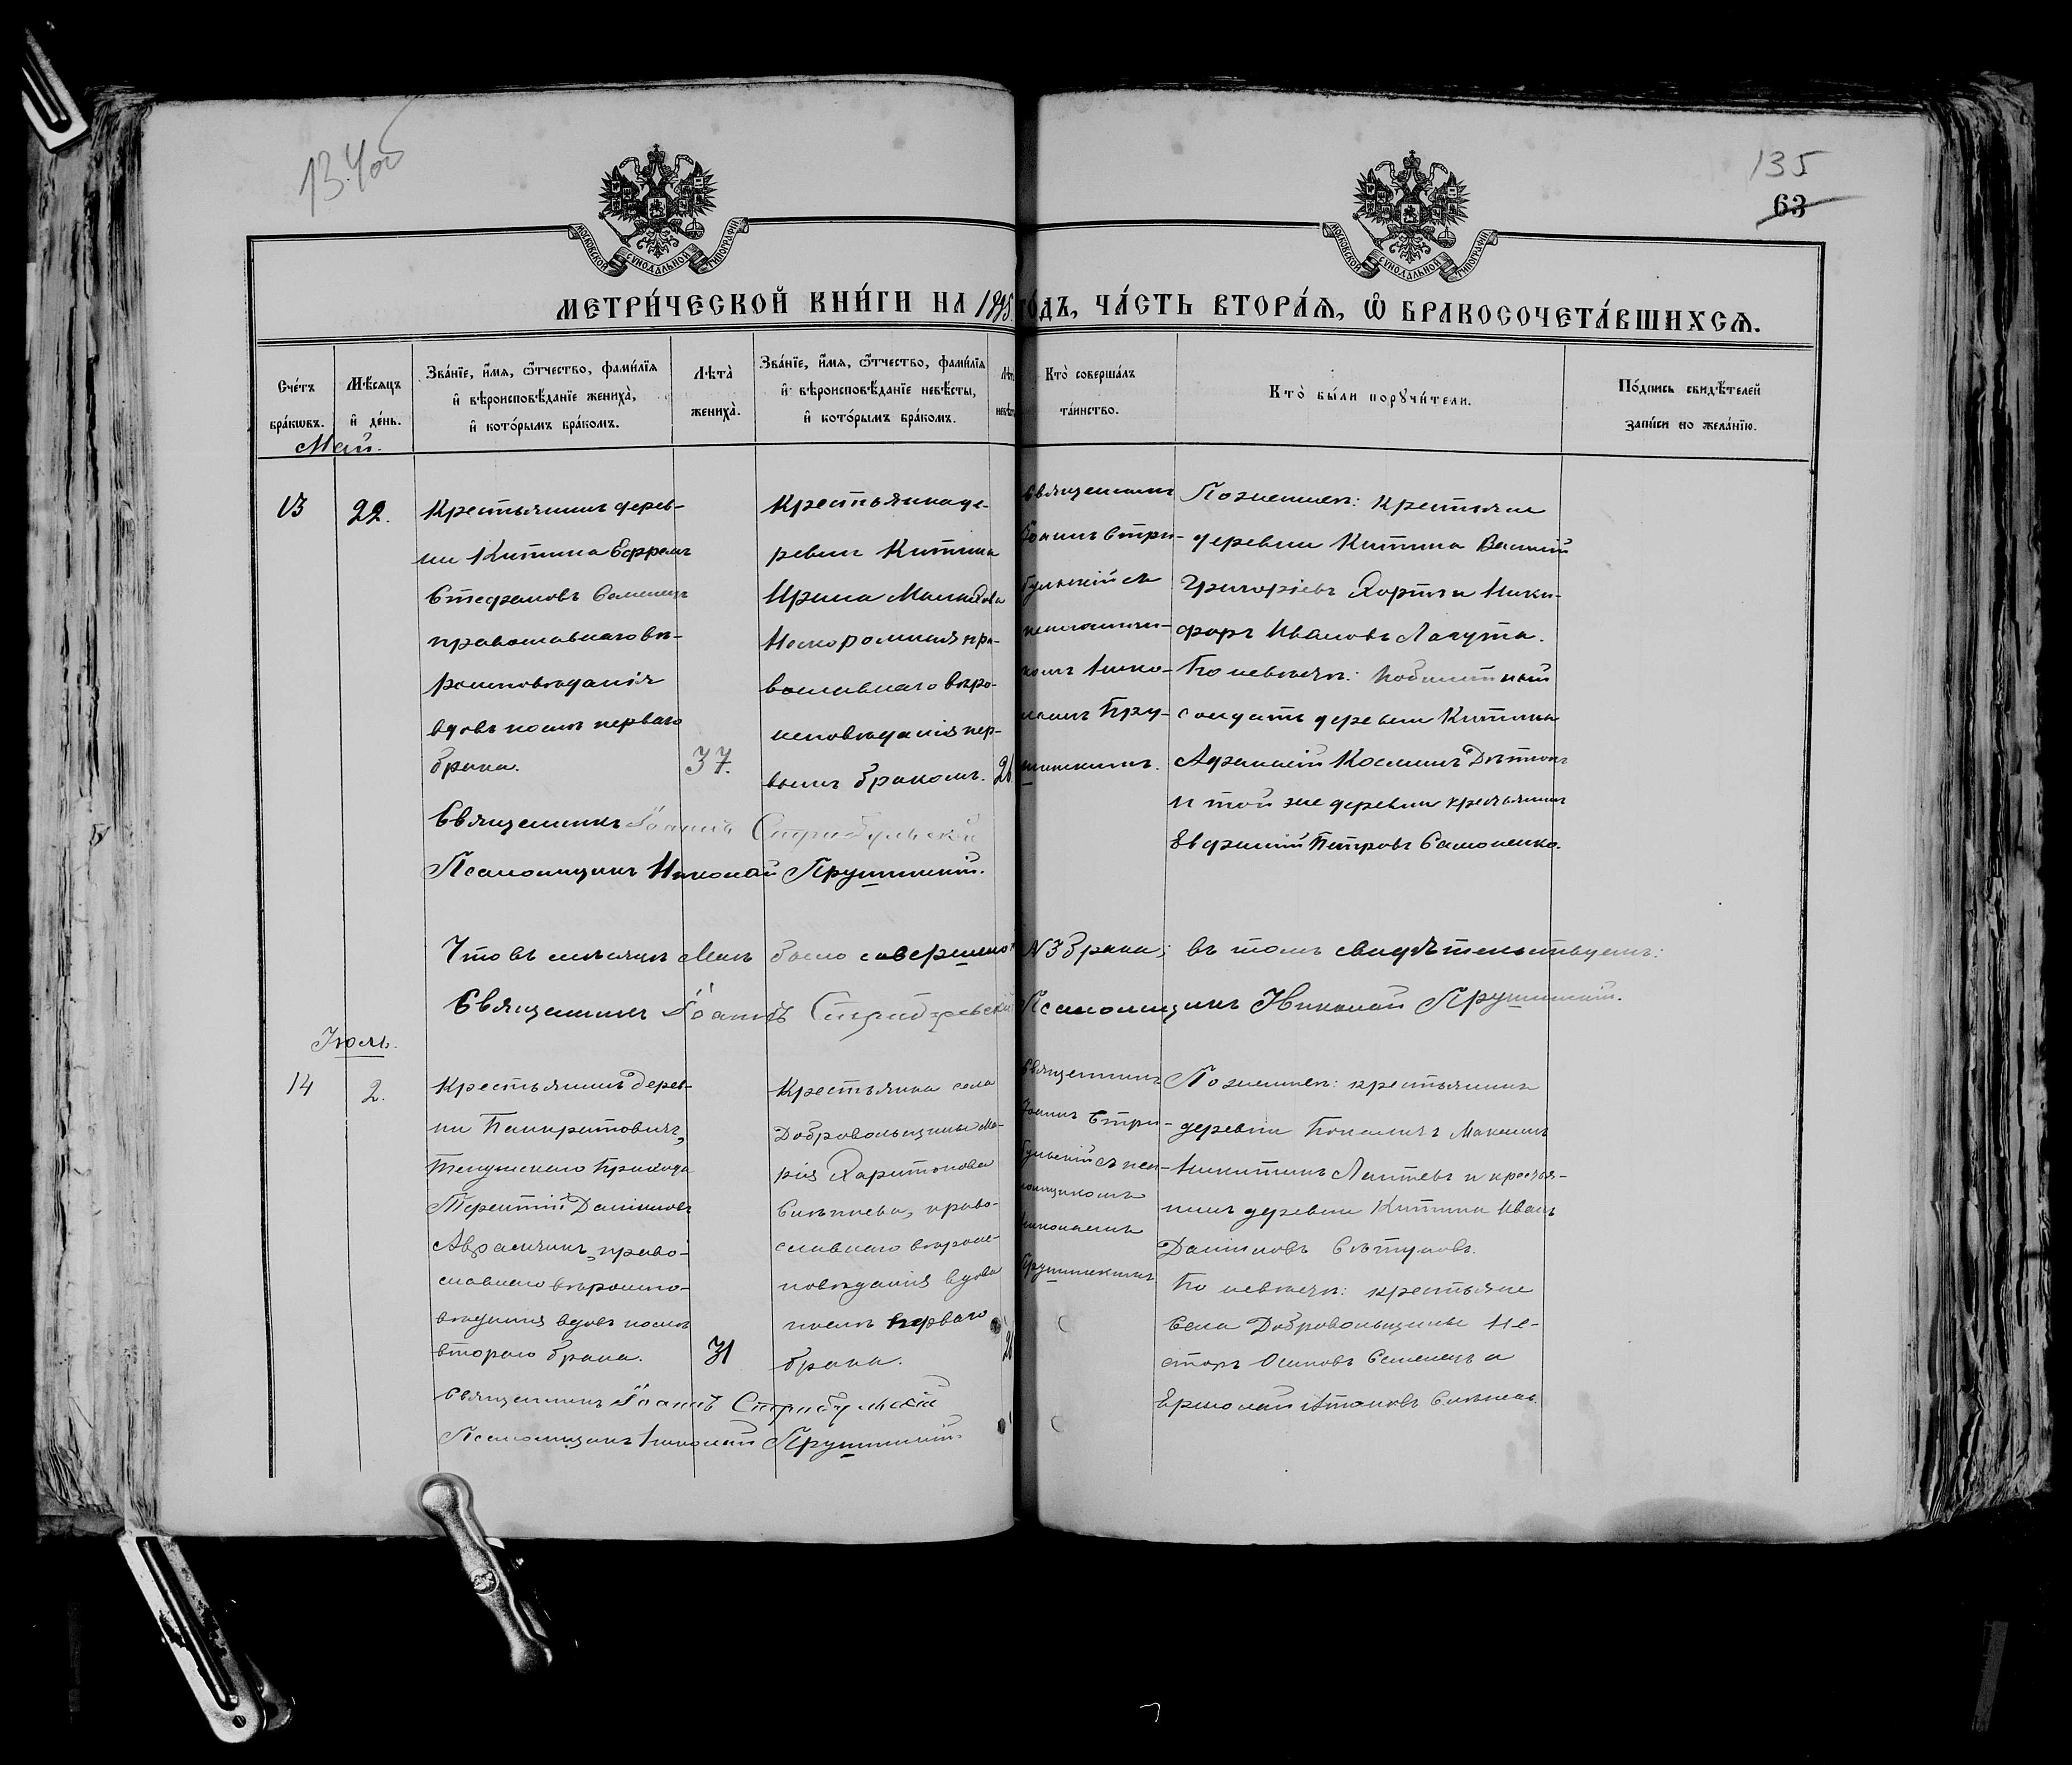 134 об
135
63
МОСКОВСКОЙ СѴНОДАЛЬНОЙ ТИПОГРАФІИ
МОСКОВСКОЙ СѴНОДАЛЬНОЙ ТИПОГРАФІИ
МЕТРИ́ЧЕСКОЙ КНИ́ГИ НА 1895 ГО́ДЪ, ЧА́СТЬ ВТОРА́Ѧ, Ѡ БРАКОСОЧЕТА́ВШИХСѦ.
Сче́тъ бра́кωвъ.
Мѣ́сяцъ и де́нь.
Зва́нїе, и́мя, ѻ́тчество, фами́лїя и вѣроисповѣ́данїе жениха̀, и кото́рымъ бра́комъ.
Лѣта̀ жениха̀.
Зва́нїе, и́мя, ѻ́тчество, фами́лїя и вѣроисповѣ́данїе невѣ́сты, и кото́рымъ бра́комъ.
Кто̀ соверша́лъ та́инство.
Кто̀ бы́ли порꙋчи́тели.
По́дпись свидѣ́телей за́писи по жела́нїю.
Май.
13
22.
Крестьянинъ дерев-
ни Китина Ефремъ
Стефановъ Саменецъ
православнаго вѣ-
роисповѣданія
вдовъ послѣ перваго
брака.
37.
Крестьянка де-
ревни Китина
Ирина
пра-
вославнаго вѣро-
исповѣданія пер-
вымъ бракомъ.
Священникъ
Іоаннъ Стри-
бульскій съ
псаломщи-
комъ Нико-
лаемъ Пру-
шинскимъ.
По женихѣ: крестьяне
деревни Китина Василій
Григоріевъ и Ники-
форъ Ивановъ Лагута.
По невѣстѣ:
солдатъ деревни Китина
Афанасій Космин
и той же деревни крестьянинъ
Евфимій Петровъ Самоненко.
Священникъ Іоаннъ Стрибульскій
Псаломщикъ Николай Прушинскій.
Что въ мѣсяцѣ Маѣ было совершено
№3 брака; въ томъ свидѣтельствуемъ:
Священникъ Іоаннъ Стрибульскій
Псаломщикъ Николай Прушинскій.
Іюль.
14
2.
Крестьянинъ дерев-
ни Панкратовичъ,
прихода
Терентій Даниловъ
право-
славнаго вѣроиспо-
вѣданія вдовъ послѣ
второго брака.
31
Крестьянка села
Добровольщины Ма-
рія Харитонова
право-
славнаго вѣроис-
повѣданія вдова
послѣ перваго
брака.
Священникъ
Іоаннъ Стри-
бульскій съ пса-
ломщикомъ
Николаемъ
Прушинскимъ.
По женихѣ: крестьянинъ
деревни
Никитинъ Лаптевъ и крестья-
нинъ деревни Китина Иванъ
Даниловъ
По невѣстѣ: крестьяне
села Добровольщины Не-
сторъ Осиповъ Семенецъ и
Ермолай
Священникъ Іоаннъ Стрибульскій
Псаломщикъ Николай Прушинскій